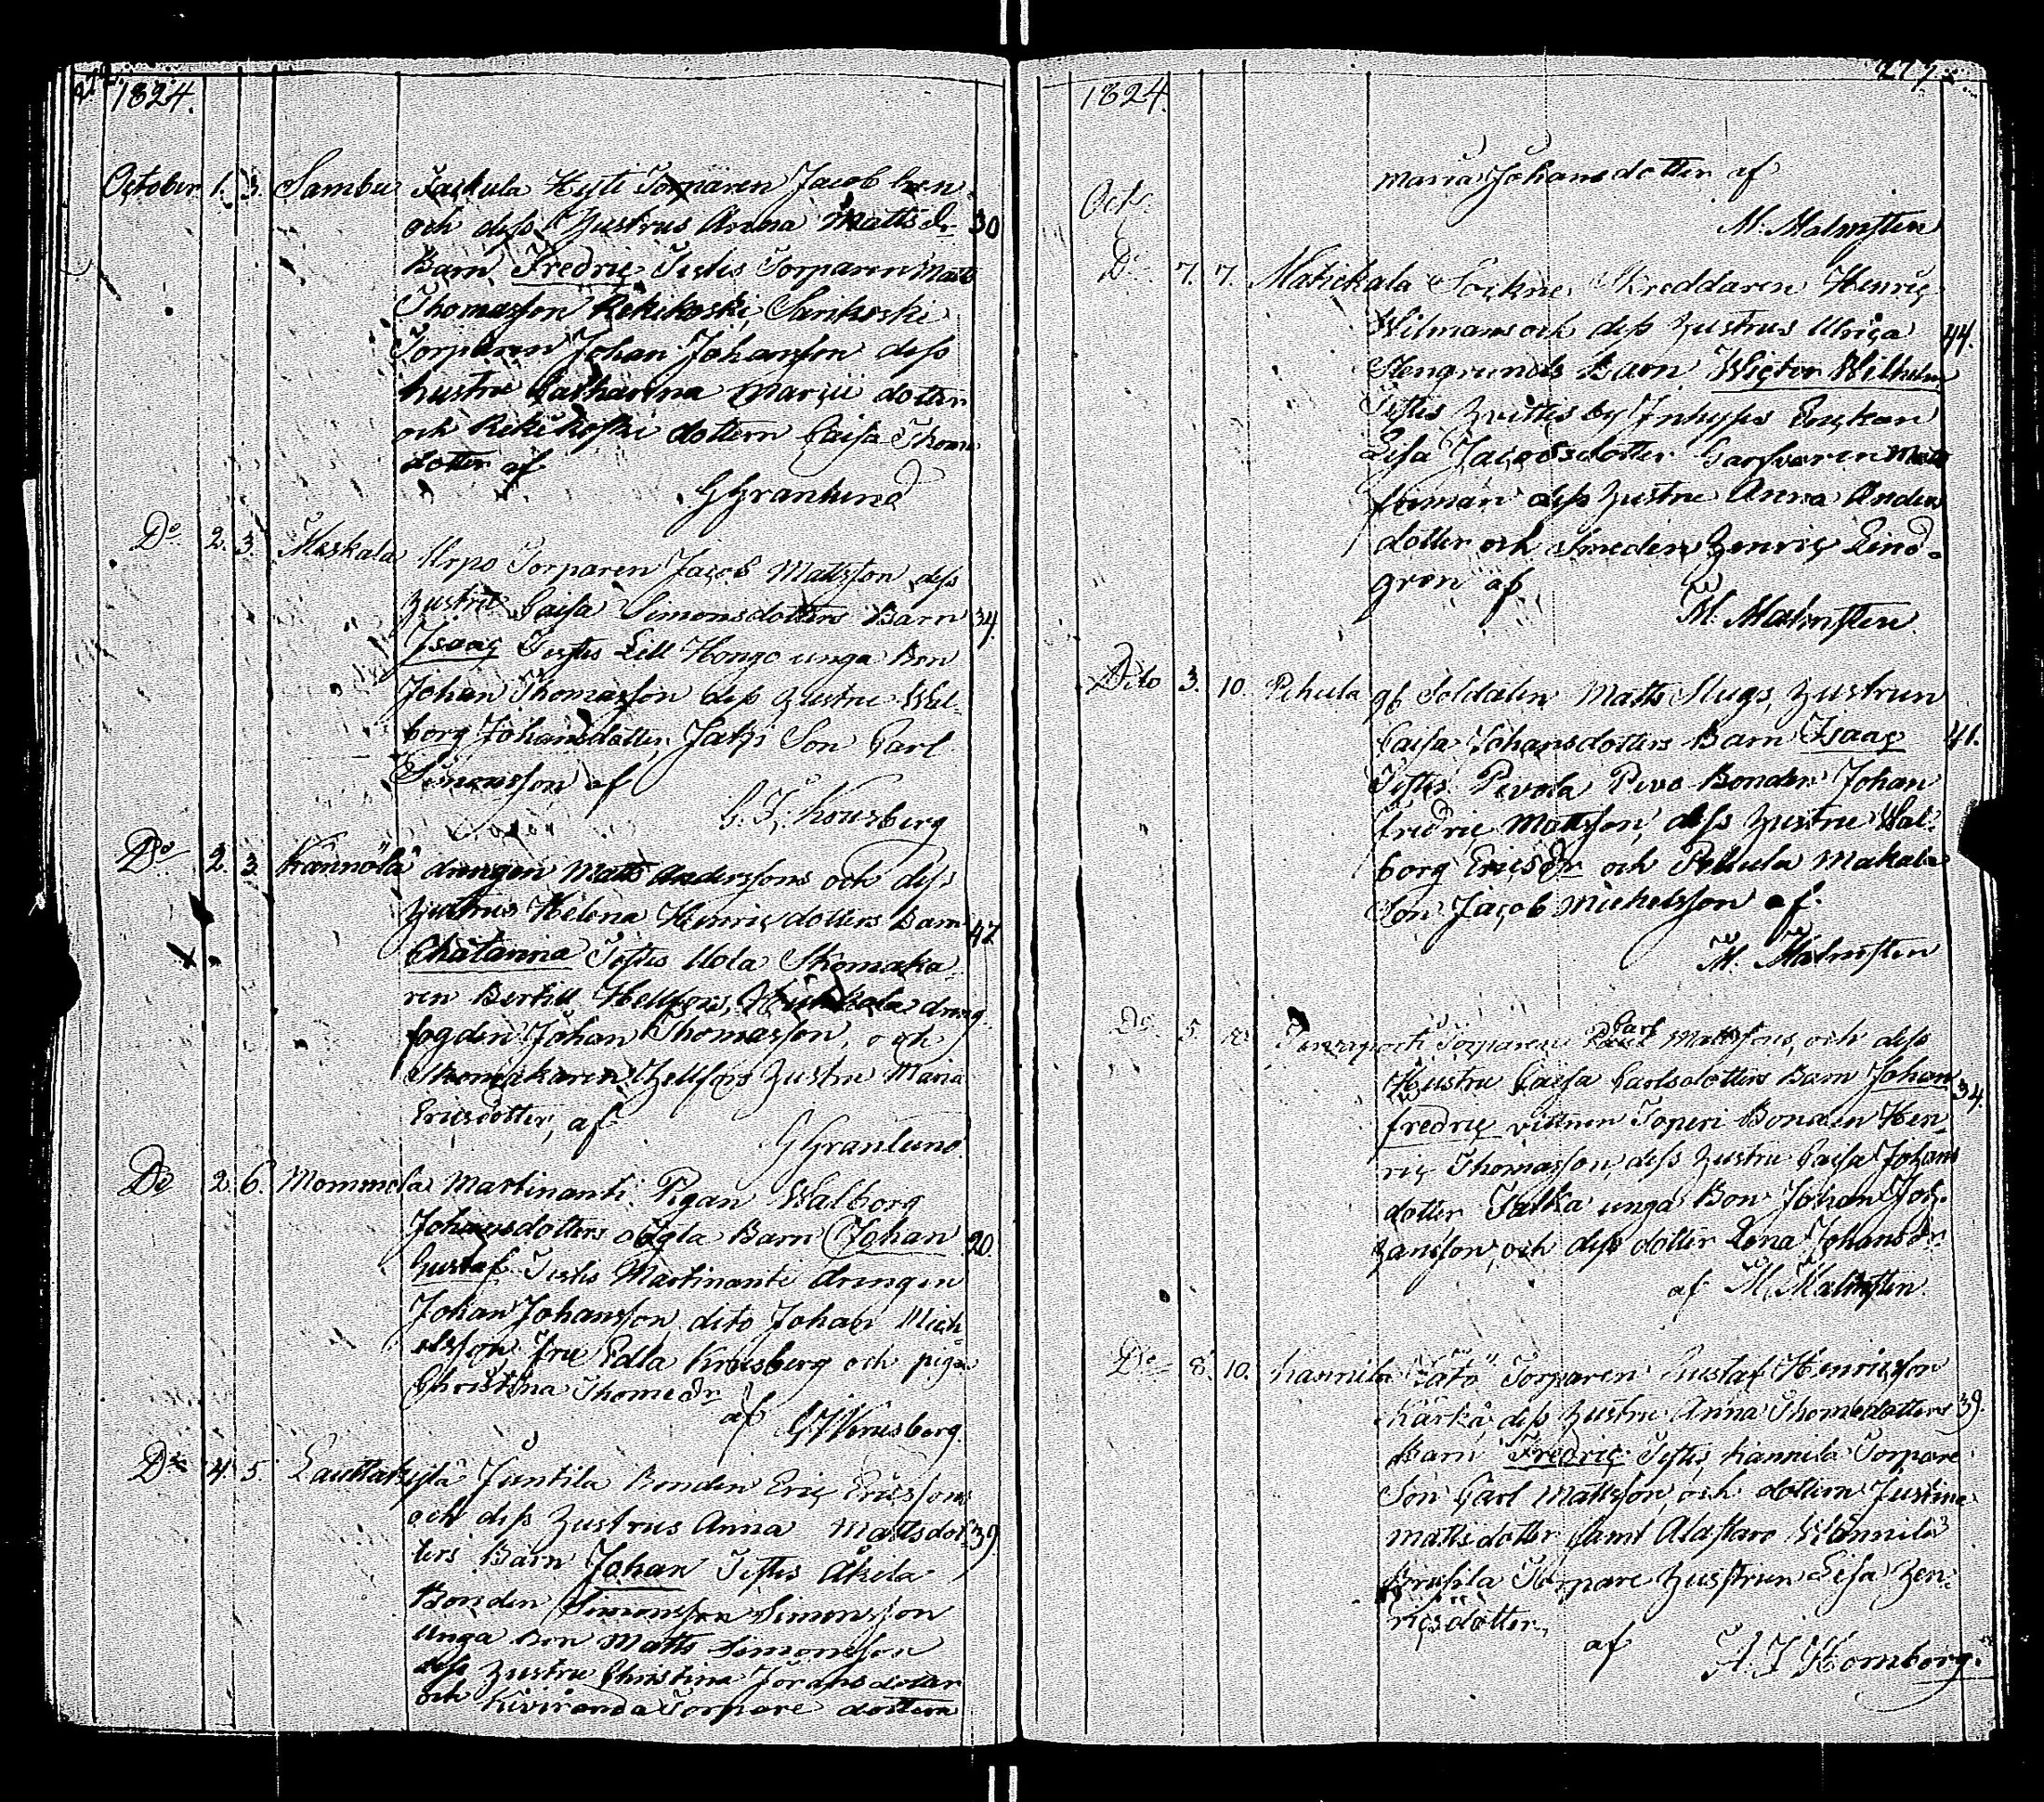 1824.
October 1. 3. Sambu Jackula Hyti Torparen Jacob
och dess Hustrus Anna Mattsdr 30
Barn Fredric Testes Torparen Matts
Thomasson Rekikoski, Sarikoski
Torparen Johan Johansson dess
hustru Catharina Marcii dotter
och Rekikoski dottern Caisa Thome
dotter af
G Granlund
Do 2. 3. Maskala Arpo Torparen Jacob Mattsson dess
hustru Caisa Simonsdotters Barn 34
Isaac Testes Lill Hongo unga Bon
Johan Thomasson dess hustru Wal-
borg Johansdotter, Son Carl
Simonsson af
Do 2. 3. Kännölä drengen Matts Anderssons och dess
hustrus Helena Henricdotters Barn 42
Chatarina Testes Uola Skomaka-
ren Bertill Hellfors, dreng
fogden Johan Thomasson, och
Skomakaren Hellfors hustru Maria
Ericsdotter, af
G Granlund.
Do 2. 6. Mommola Martinanti Pigan Walborg
Johansdotters oägta Barn Johan 20.
Gustaf Testes Martinanti drengen
Johan Johansson, dito Johan Mich-
elsson, fru Edla Krusberg och piga
Christina Thomedr
af Krusberg.
Do 4 5 Lauttakylä Juntila Bonden Eric Ericssons
och dess hustrus Anna Mattsdot- 39
ters Barn Johan Testes Äkilä
Bonden Simonsson Simonsson
unga Bon Matts Simonsson
dess hustru Christina Jöransdotter
och Kiviranda Torpare dottern
1824.
Oct.
Maria Johansdotter af
M. Malmsten
Do 7. 7. Matickala Sockne Skreddaren Henric
Wilmans och dess hustrus Ulrica 44.
Stengrunds Barn Wictor Wilhelm
Testes Hvittis by Inhyses Enckan
Lisa Jacobsdotter Garfvaren Matts
Forman dess hustru Anna Anders
dotter och Smeden Henric Lind-
gren af
M. Malmsten.
Dito 3. 10. Pehula gl. Soldaten Matts Slugs, hustrun
Caisa Johansdotters Barn Isaac 41.
Testes Pevola Pevo Bonden Johan
Fredric Mattsson, dess hustru Wal-
borg Ericsdr och Pehula Makala
Son Jacob Michelsson af
M. Malmsten
Do 5. Torparen Carl Mattssons, och dess
Hustru Caisa Carlsdotters Barn Johan 34.
Fredric vittnen Toperi Bonden Hen-
ric Thomasson, dess hustru Caisa Johans
dotter Talka unga Bon Johan Jo-
hansson, och dess dotter Lena Johansdr
af M. Malmsten.
Do 8. 10. Kannila Torparen Gustaf Henricsson
Kärkä, dess hustru Anna Thomedotters 39.
Barn Fredric Testes, Kannila Torpare
Son Carl Mattsson, och dottern Justina
Mattsdotter samt Alastaro Wännilä
Torpare hustrun Lisa Hen-
ricsdotter,
af